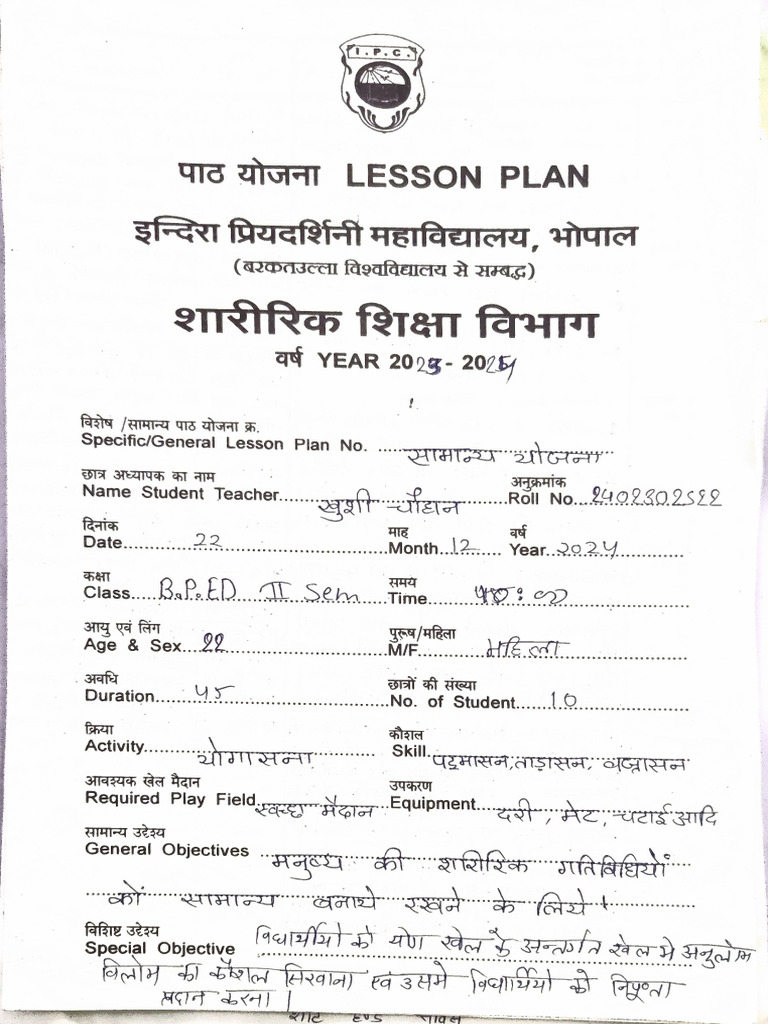 I.P.C.
पाठ योजना LESSON PLAN
इन्दिरा प्रियदर्शिनी महाविद्यालय, भोपाल
(बरकतउल्ला विश्वविद्यालय से सम्बद्ध)
शारीरिक शिक्षा विभाग
वर्ष YEAR 2023 - 2024
विशेष /सामान्य पाठ योजना क्र.
Specific/General Lesson Plan No. सामान्य योजना
छात्र अध्यापक का नाम अनुक्रमांक
Name Student Teacher खुशी चौहान Roll No. 2402302522
दिनांक माह वर्ष
Date 22 Month 12 Year 2024
कक्षा समय
Class B.P.ED II Sem Time
आयु एवं लिंग पुरूष/महिला
Age & Sex 22 M/F महिला
अवधि छात्रों की संख्या
Duration 45 No. of Student 10
क्रिया कौशल
Activity योगासना Skill पद्मासन, ताड़ासन, वज्रासन
आवश्यक खेल मैदान उपकरण
Required Play Field स्वच्छ मैदान Equipment दरी, मेट, चटाई आदि
सामान्य उद्देश्य
General Objectives मनुष्य की शारीरिक गतिविधियों
कों सामान्य बनाये रखने के लिये
विशिष्ट उद्देश्य
Special Objective विधार्थीयो को योग खेल के अन्तर्गत खेल मे अनुलोम
विलोम का कौशल सिखाना एवं उसमे विधार्थियो को निपूणता
प्रदान करना।